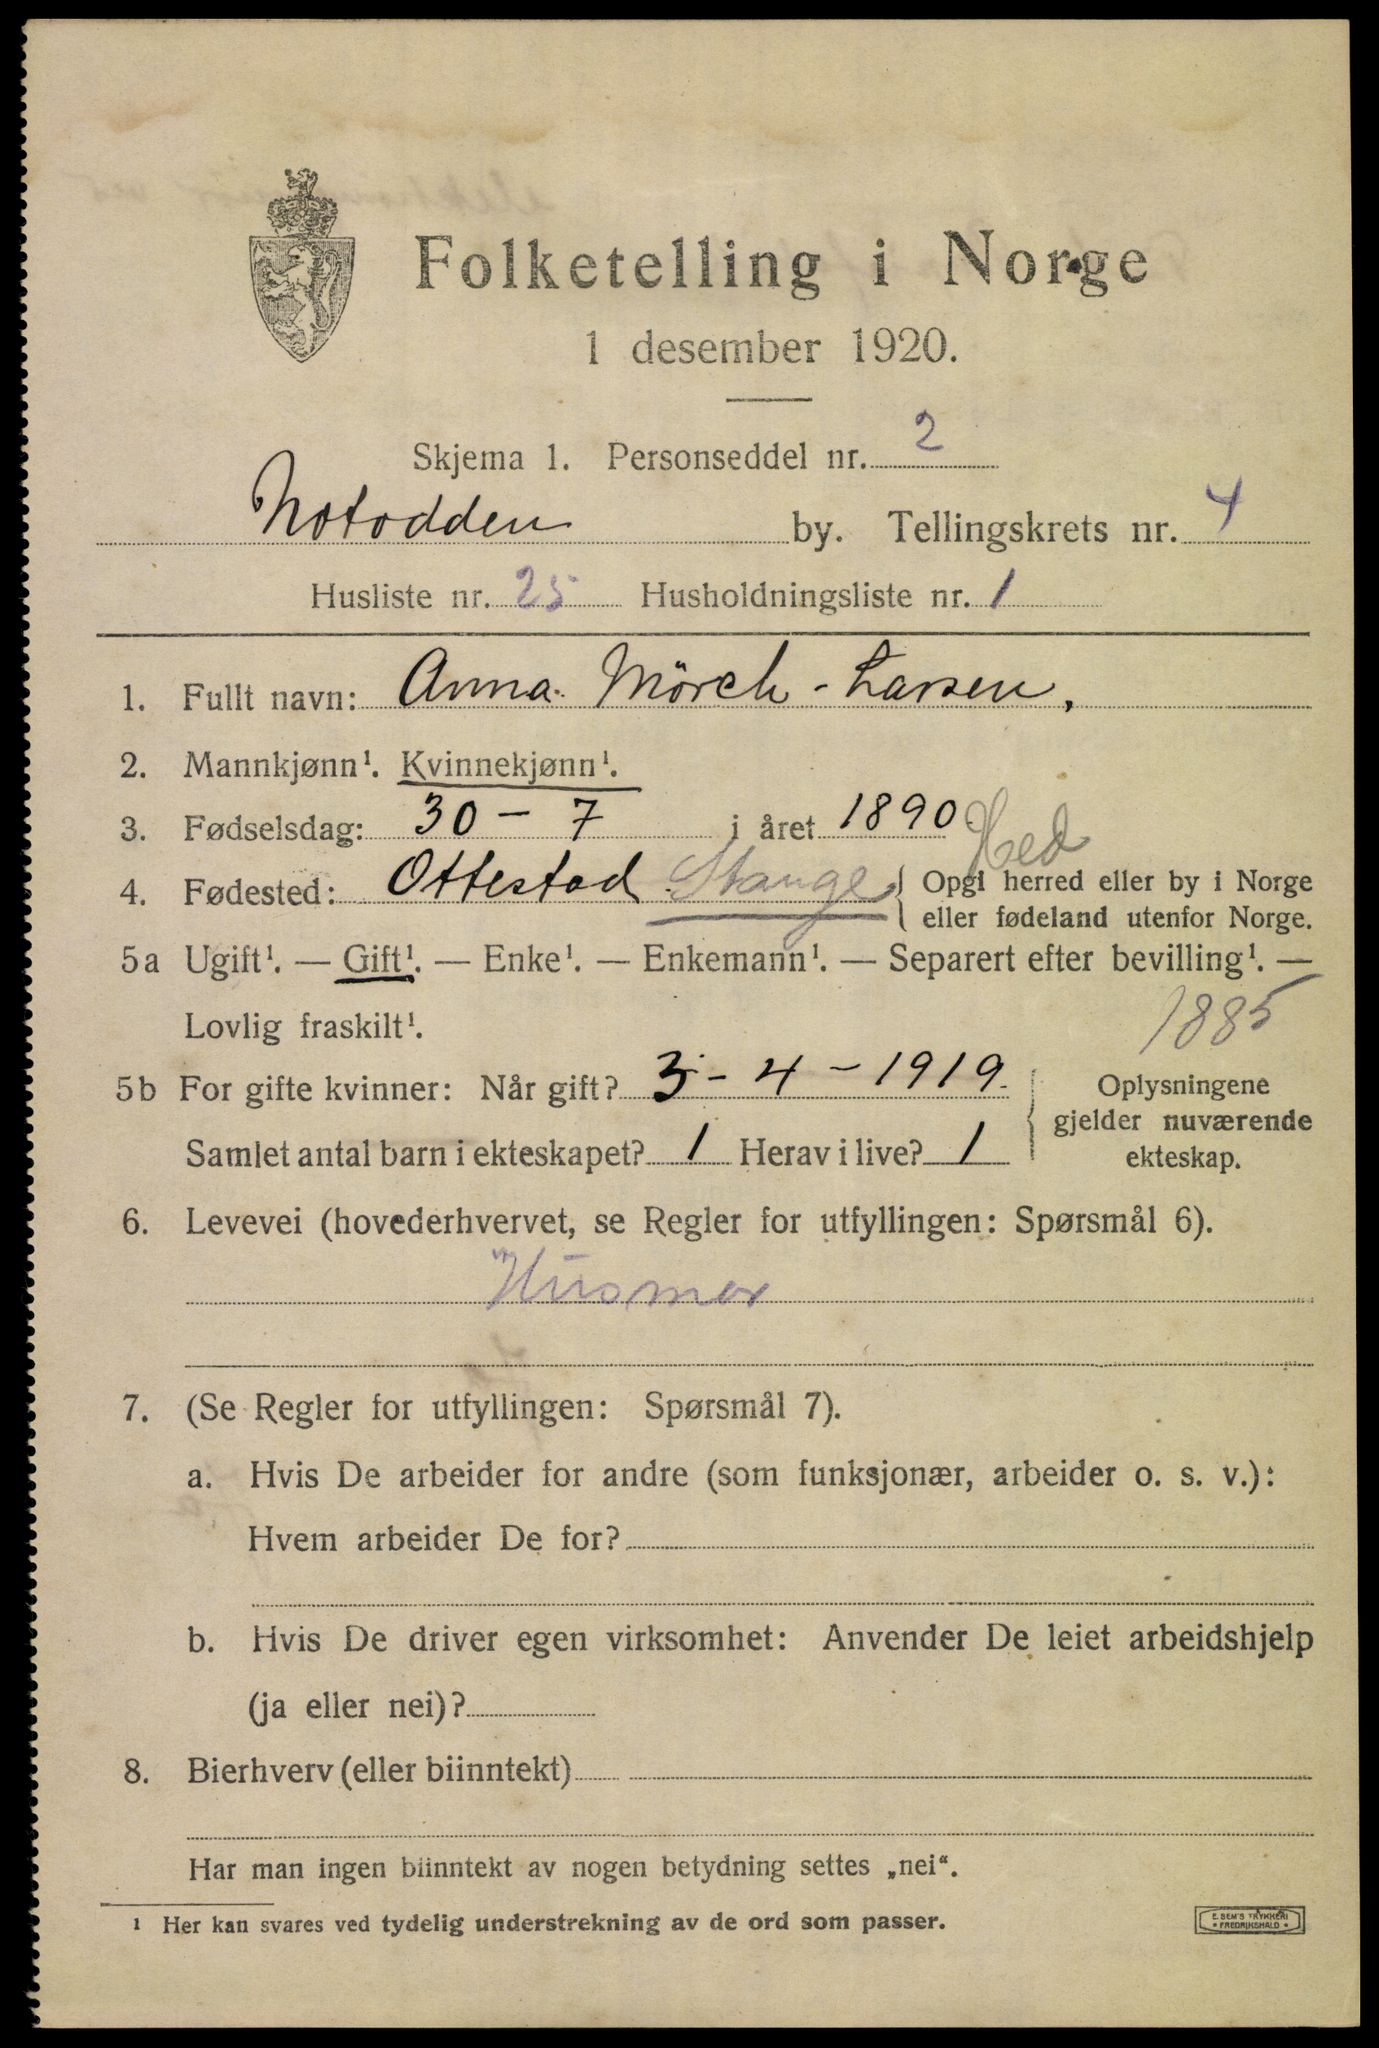 Folketelling i Norge
1 desember 1920.
Skjema 1. Personseddel nr. 2
Notodden by. Tellingskrets nr. 4
Husliste nr. 25 Husholdningsliste nr. 1
1. Fullt navn: Anna Mörch-Larsen,
2. Mannkjønn¹. Kvinnekjønn¹.
3. Fødselsdag: 30 - 7 i året 1890
Hed
4. Fødested: Ottestad Stange { Opgi herred eller by i Norge
eller fødeland utenfor Norge.
5a Ugift¹. — Gift¹. — Enke¹. — Enkemann¹. — Separert efter bevilling¹. —
Lovlig fraskilt¹.
1885
5b For gifte kvinner: Når gift? 3 - 4 - 1919. { Oplysningene
gjelder nuværende
Samlet antal barn i ekteskapet? 1 Herav i live? 1 ekteskap.
6. Levevei (hovederhvervet, se Regler for utfyllingen: Spørsmål 6).
Husmor
7. (Se Regler for utfyllingen: Spørsmål 7).
a. Hvis De arbeider for andre (som funksjonær, arbeider o. s. v.):
Hvem arbeider De for?
b. Hvis De driver egen virksomhet: Anvender De leiet arbeidshjelp
(ja eller nei)?
8. Bierhverv (eller biinntekt)
Har man ingen biinntekt av nogen betydning settes „nei“.
¹ Her kan svares ved tydelig understrekning av de ord som passer.
E. SEM'S TRYKKERI
* FREDRIKSHALD *